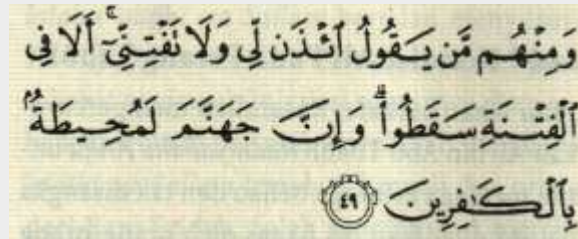 وَمِنْهُم مَّن يَقُولُ ائْذَن لِّي وَلَا تَفْتِنِّيٓ ۚ أَلَا فِي
ٱلْفِتْنَةِ سَقَطُوا۟ ۗ وَإِنَّ جَهَنَّمَ لَمُحِيطَةٌۢ
بِٱلْكَـٰفِرِينَ ٤٩